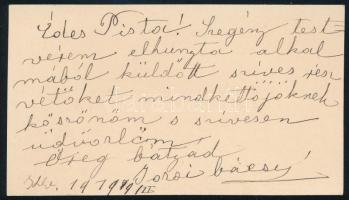 Édes Pista! Szegény test
vérem elhunyta alkal
mából küldött szíves rész
vétőket mindkettőjöknek
köszönöm s szívesen
üdvözlöm
Öreg bátyád
bácsi